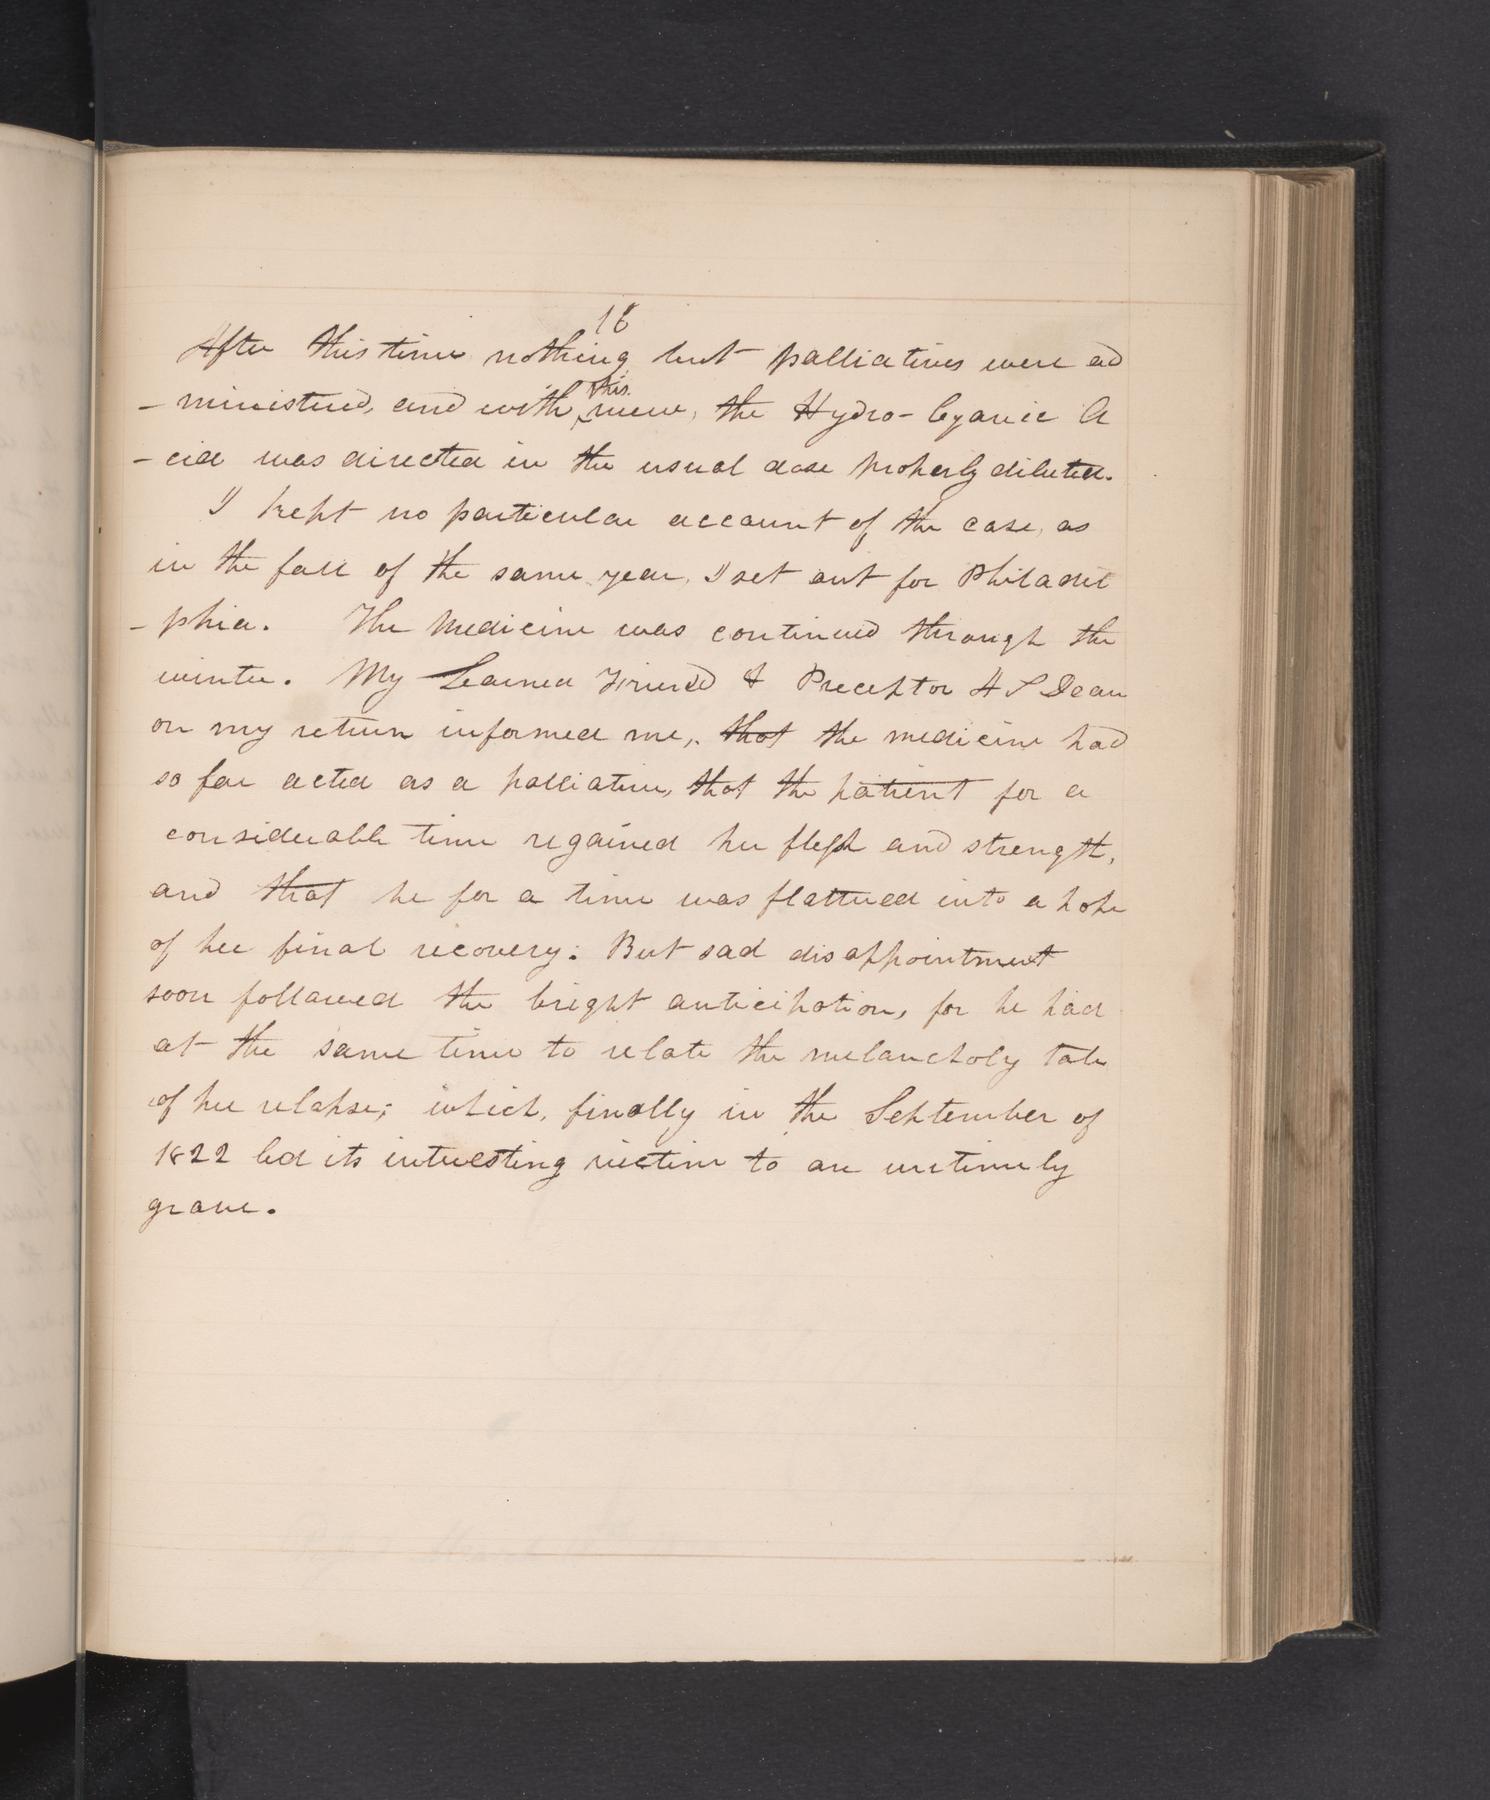 18
After this time nothing but palliatives were ad
- ministered, and with this view, the Hydro-Cyanic A
- cid was directed in the usual dose properly diluted.
I kept no particular account of the case, as
in the fall of the same year, I set out for Philadel
- phia. The Medicine was continued through the
winter. My Learned Friend & Preceptor H S Dean
on my return informed me, that the medicine had
so far acted as a palliative, that the patient for a
considerable time regained her flesh and strength,
and that he for a time was flattered into a hope
of her final recovery: But sad disappointment
soon followed the bright anticipation, for he had
at the same time to relate the melancholy tale
of her relapse; which, finally in the September of
1822 led its interesting victim to an untimely
grave.